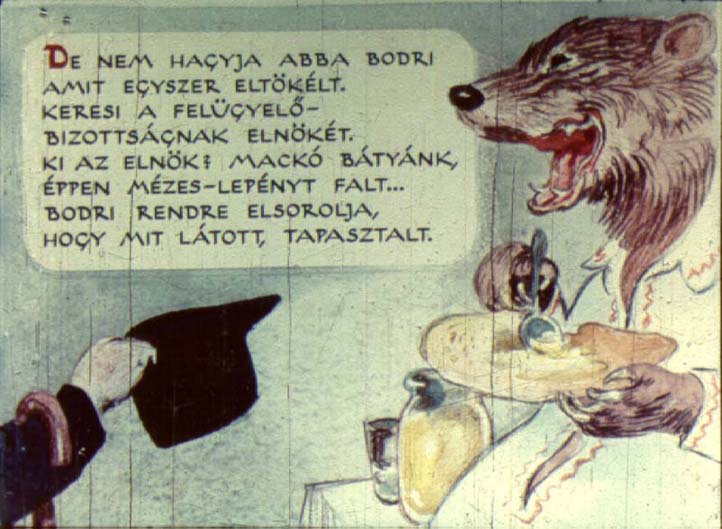 DE NEM HAGYJA ABBA BODRI
AMIT EGYSZER ELTÖKÉLT.
KERESI A FELÜGYELŐ-
BIZOTTSÁGNAK ELNÖKÉT.
KI AZ ELNÖK? MACKÓ BÁTYÁNK,
ÉPPEN MÉZES-LEPÉNYT FALT...
BODRI RENDRE ELSOROLJA,
HOGY MIT LÁTOTT, TAPASZTALT.